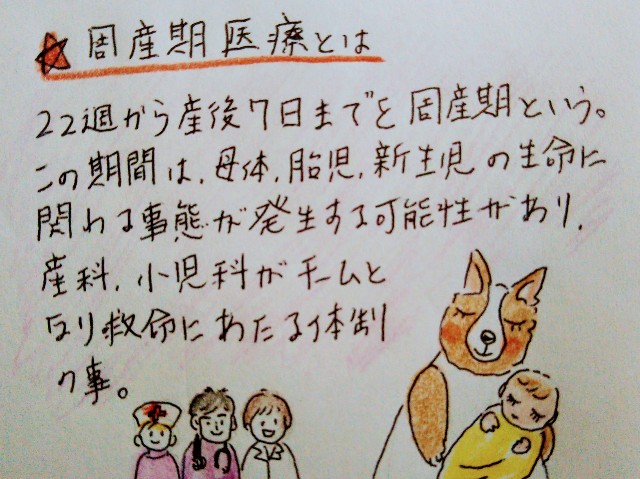 周産期医療とは
22週から産後7日までを周産期という。
この期間は、母体、胎児、新生児の生命に
関わる事態が発生する可能性があり、
産科、小児科がチームと
なり救命にあたる体制
の事。